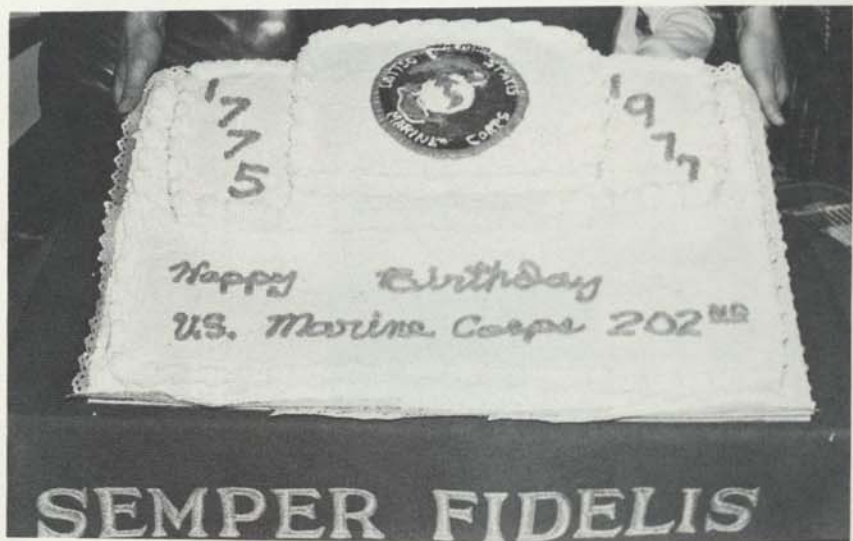 UNITED STATES
MARINE CORPS
1775
1977
Happy Birthday
U.S. Marine Corps 202ND
SEMPER FIDELIS